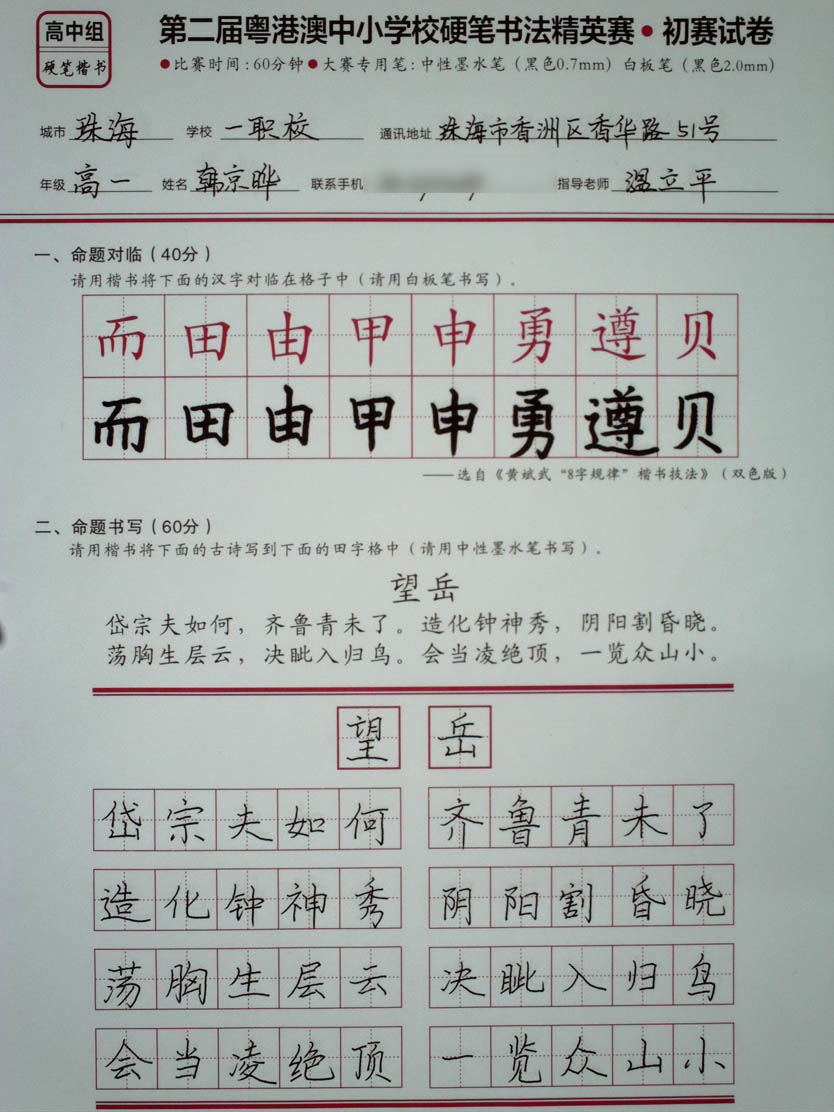 高中组
硬笔楷书
第二届粤港澳中小学校硬笔书法精英赛•初赛试卷
●比赛时间:60分钟●大赛专用笔:中性墨水笔（黑色0.7mm）白板笔（黑色2.0mm）
城市 珠海 学校 一职校 通讯地址 珠海市香洲区香华路51号
年级 高一 姓名 韩京晔 联系手机 指导老师 温立平
一、命题对临（40分）
请用楷书将下面的汉字对临在格子中（请用白板笔书写）。
而田由甲申勇遵贝
而田由甲申勇遵贝
——选自《黄斌武“8字规律”楷书技法》（双色版）
二、命题书写（60分）
请用楷书将下面的古诗写到下面的田字格中（请用中性墨水笔书写）。
望岳
岱宗夫如何，齐鲁青未了。造化钟神秀，阴阳割昏晓。
荡胸生层云，决眦入归鸟。会当凌绝顶，一览众山小。
望岳
岱宗夫如何 齐鲁青未了
造化钟神秀 阴阳割昏晓
荡胸生层云 决眦入归鸟
会当凌绝顶 一览众山小